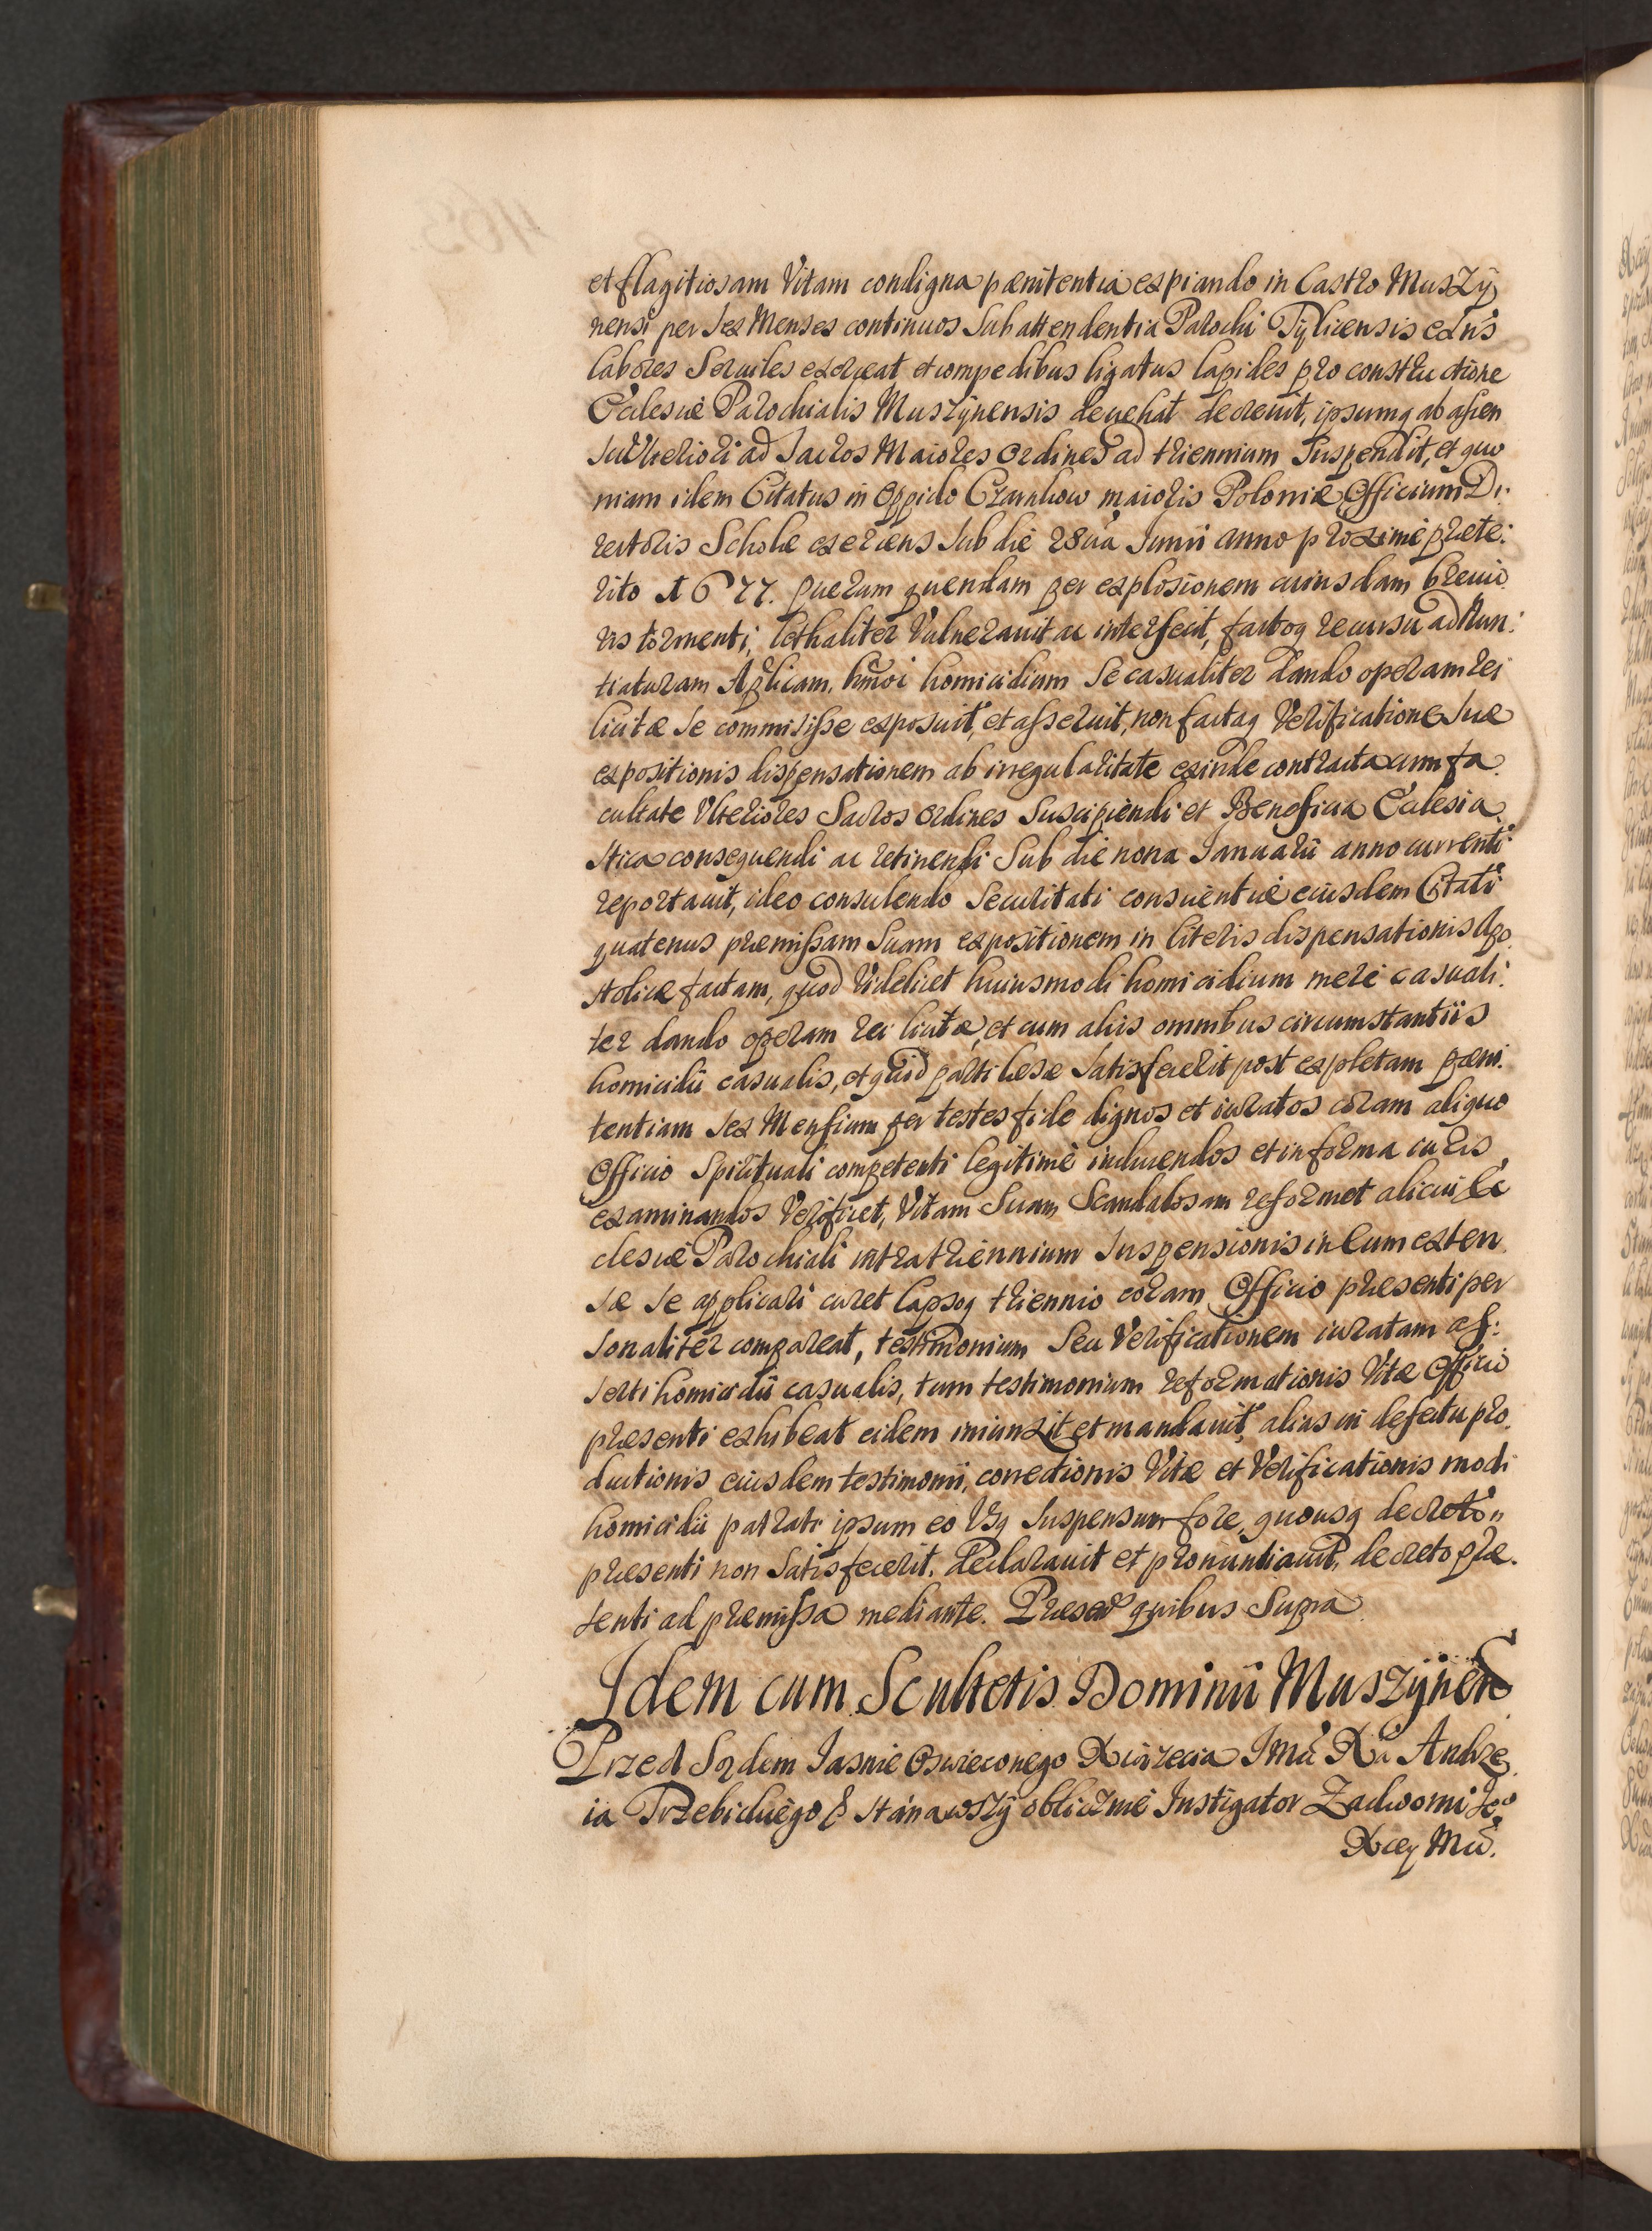 et flagitiosam Vitam condigna pænitentia expiando in Castro Muszÿ
nensi per sex Menses continuos Sub attendentia Parochi Tÿlicensis certis
labores Seruiles exerceat et compedibus ligatus lapides pro constructione
Ecclesiæ Parochialis Muszÿnensis deuehat decreuit, ipsumq ab ascen
su Vlteriori ad Sacros Maiores Ordines ad triennium Suspendit, et quo
niam idem Citatus in Oppido Czarnkow maioris Poloniæ Officium Di
rectoris Scholæ exercens Sub die 28ua Junii anno proxime præte:
rito 1677. puerum quendam per explosionem cuiusdam breui
ris tormenti, lethaliter Vulnerauit ac interfecit, factoq recursu ad Nun:
tiaturam Aplicam, hmoi homicidium Se casualiter dando operam rei
licitæ Se commisisse exposuit, et asseruit, non factaq Verificatione Suæ
expositionis dispensationem ab irregularitate exinde contracta cum fa
cultate Vlteriores Sacros Ordines Suscipiendi et Beneficia Ecclesia
stica consequendi ac retinendi Sub die nona Januarii anno currenti
reportauit, ideo consulendo Securitati conscientiæ eiusdem Citati
quatenus præmissam Suam expositionem in literis dispensationis Apo
stolicæ factam, quod Videlicet huiusmodi homicidium mere casuali:
ter dando operam rei licitæ, et cum aliis omnibus circumstantiis
homicidii casualis, et quod parti læsæ Satisfecerit post expletam pæni:
tentiam Sex Mensium per testes fide dignos et iuratos coram aliquo
Officio Spirituali competenti legitime inducendos et in forma iuris
examinandos Verificet, Vitam Suam Scandalosam reformet alicui Ec
clesiæ Parochiali intra triennium Suspensionis in Eum exten
sæ Se applicari curet lapsoq triennio coram Officio præsenti per
sonaliter compareat, testimonium Seu Verificationem iuratam as:
serti homicidii casualis, tum testimonium reformationis Vitæ Officio
præsenti exhibeat eidem iniunxit et mandauit, alias in defectu pro
ductionis eiusdem testimonii, correctionis Vitæ et Verificationis modi
homicidii patrati ipsum eo Vsq Suspensum fore, quousq decreto
præsenti non Satisfecerit. Declarauit et pronuntiauit, decreto præ.
senti ad præmissa mediante. Præsen quibus Supra
Idem cum Scultetis Dominii Muszÿnen
Przed Sądem Jasnie Oswieconego Xiązecia Jmci Xa Andrze
ia Trzebickiego & stanąwszÿ oblicznie Instigator Zadworni Jeo
Xcey Mci.